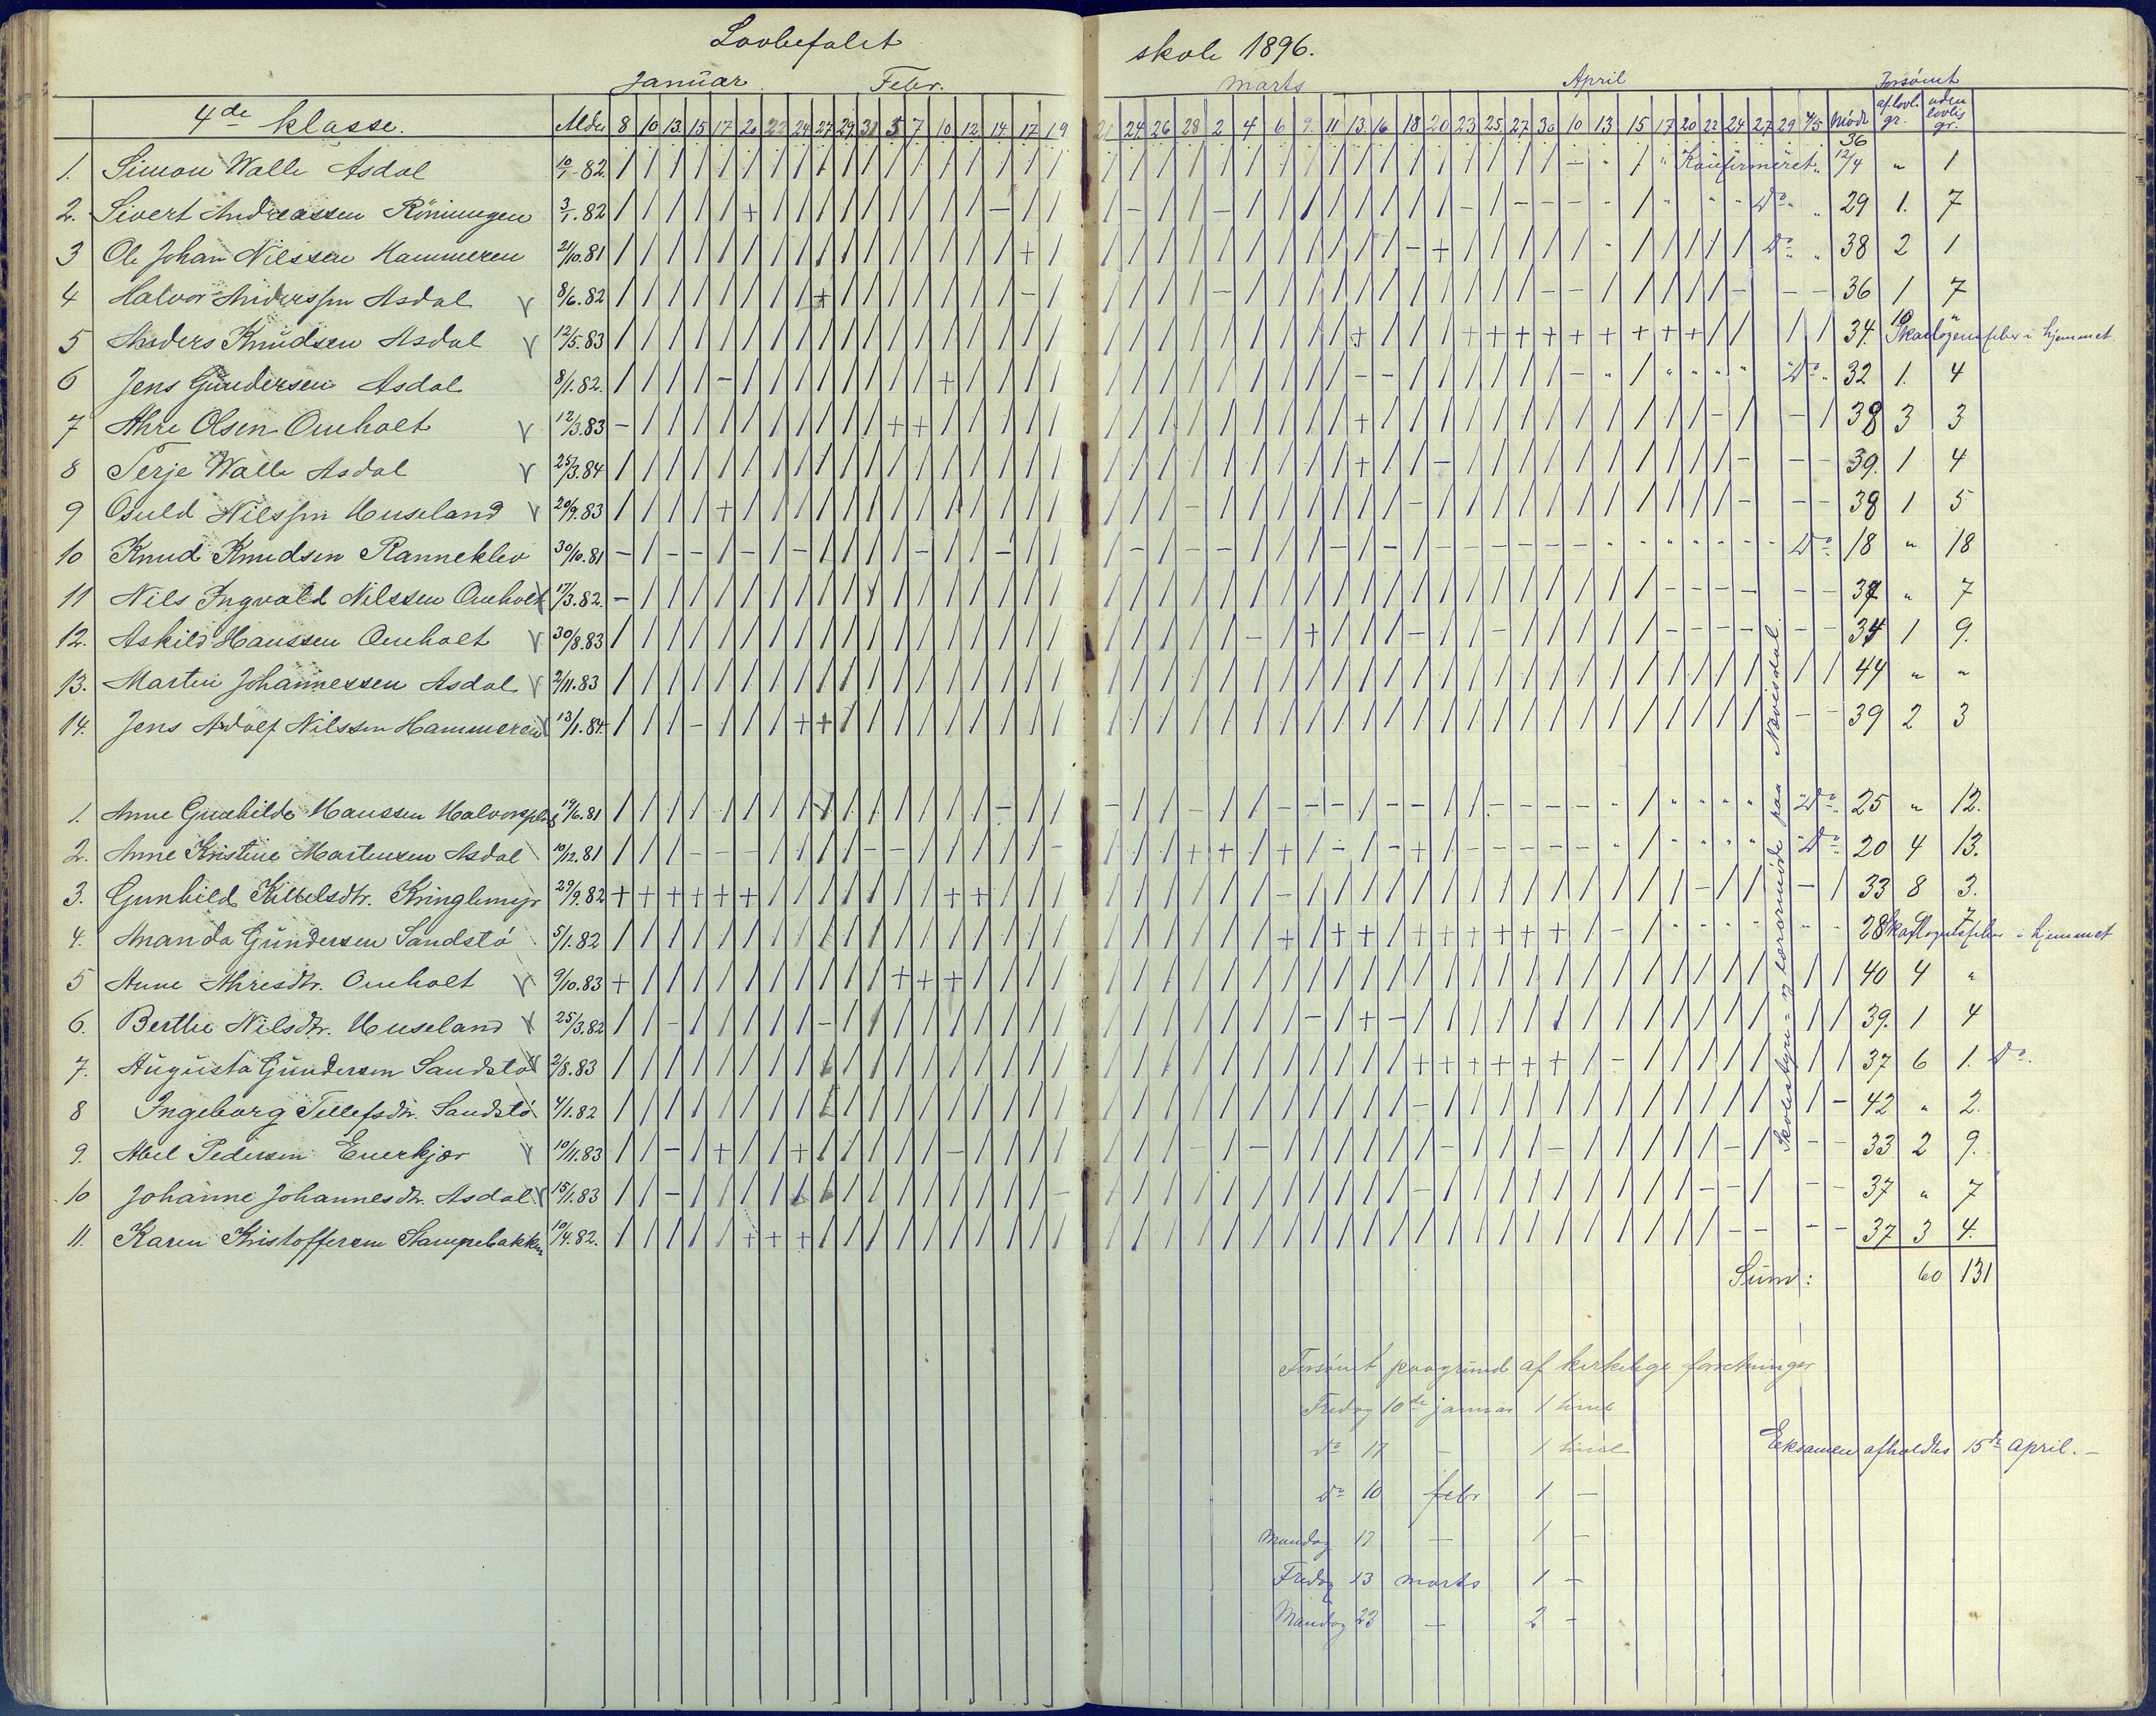 Lovbefalet skole 1896.
Januar. Febr. Marts April Forsömt
4de klasse. Alder 8 10 13 15 17 20 22 24 27 29 31 5 7 10 12 14 17 19 21 24 26 28 2 4 6 9 11 13 16 18 20 23 25 27 30 10 13 15 17 20 22 24 27 29 4/5 Mödt af lovl. gr. uden lovlig gr.
1. Simon Walle Asdal 10/1-82. Konfirmeret 36 12/4 " 1
2. Sivert Andreassen Röningen 3/1.82 Do 29 1. 7
3 Ole Johan Nilssen Hammeren 21/10.81 Do 38 2 1
4 Halvor Anderssen Asdal V 8/6.82 36 1 7
5 Anders Knudsen Asdal V 12/5.83 34. 10 " Skarlagensfeber i hjemmet
6 Jens Gundersen Asdal 8/1.82. Do 32 1. 4
7 Ahre Olsen Omholt V 12/3.83 38 3 3
8 Terje Walle Asdal V 25/3.84 39. 1 4
9 Osuld Nilssen Huseland V 20/9.83 38 1 5
10 Knud Knudsen Ranneklev 30/10.81 Do 18 " 18
11 Nils Ingvald Nilssen Omholt V 17/3.82. 37 " 7
12. Askild Hanssen Omholt V 30/8.83 34 1 9.
13. Martin Johannessen Asdal V 2/11.83 44 " "
14. Jens Adolf Nilssen Hammeren V 13/1.84 39 2 3
1. Anne Gunhilde Hanssen Halvorspl. 19/6.81 Do 25 " 12.
2. Anne Kristine Martensen Asdal 10/12.81 Do 20 4 13.
3. Gunhild Kittelsdtr. Kringlemyr 29/9.82 33 8 3.
4. Amanda Gundersen Sandstö 5/1.82 28 9 7 Skarlagensfeber i hjemmet
5 Anne Ahresdtr. Omholt V 9/10.83 40 4 "
6. Berthe Nilsdtr. Huseland V 25/3.82 39. 1 4
7. Augusta Gundersen Sandstö V 2/8.83 37 6 1. Do.
8 Ingeborg Tellefsdtr. Sandstö 4/1.82 42 " 2.
9. Abel Pedersen Enerkjær V 10/11.83 33 2 9.
10 Johanne Johannesdtr. Asdal V 15/1.83 37 " 7
11. Karen Kristoffersen Stampebakken 10/4.82. 37 3 4.
Skolestyre- og lærermöde paa Nævisdal.
Sum: 60 131
Forsömt paagrund af kirkelige forretninger
Fredag 10de januar 1 time
do 17 — 1 time
Eksamen afholdtes 15de april. —
do 10 febr 1 —
Mandag 17 — 1 —
Fredag 13 marts 1 —
Mandag 23 — 2 —